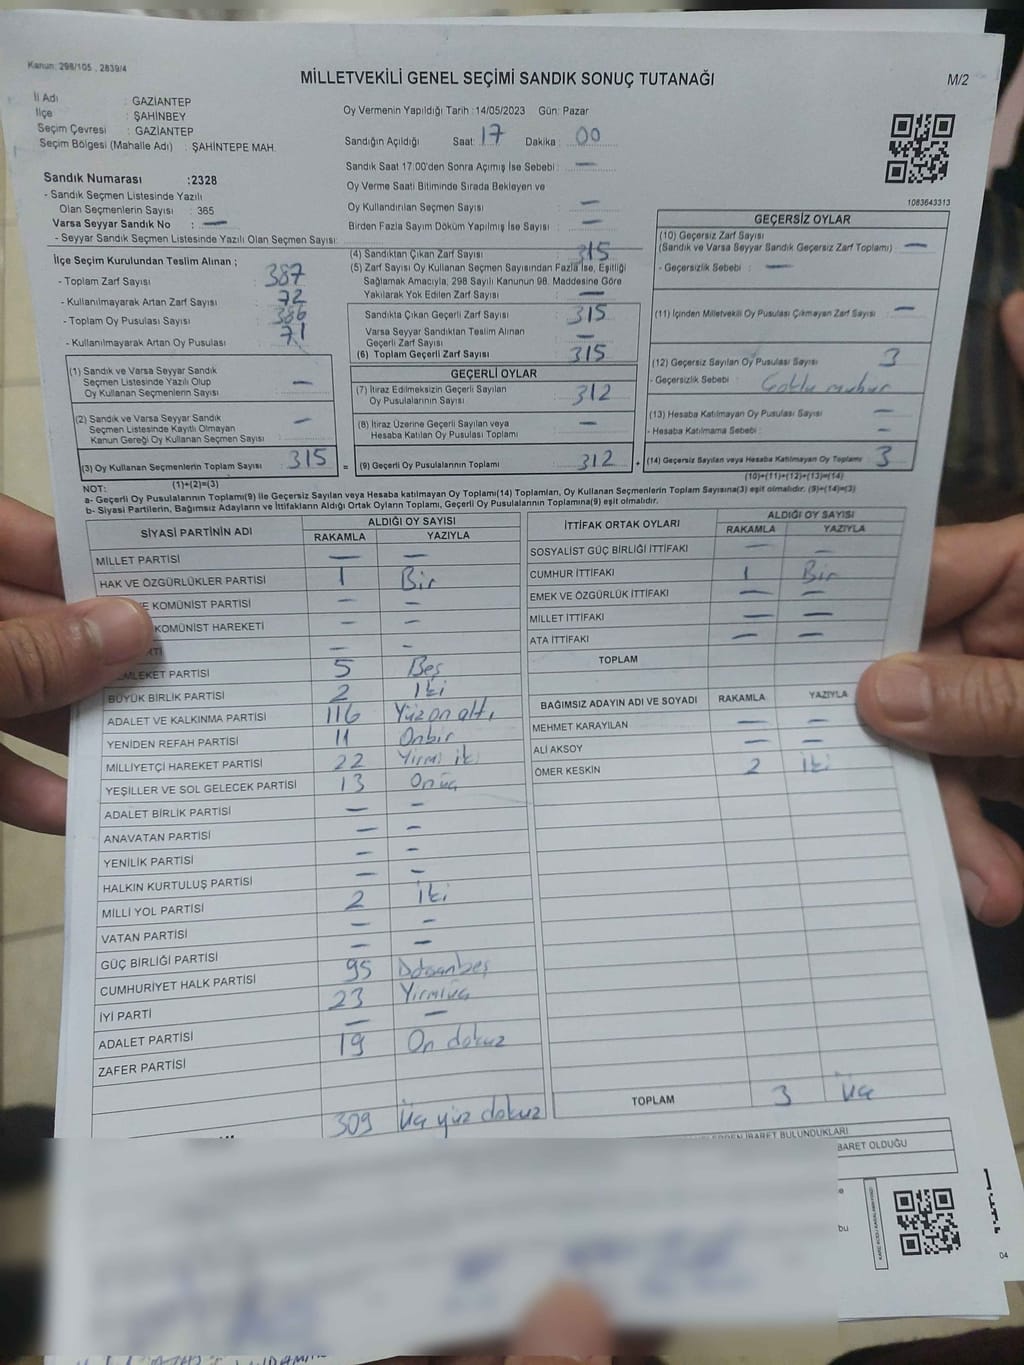 Kanun: 298/105 , 2839/4
MİLLETVEKİLİ GENEL SEÇİMİ SANDIK SONUÇ TUTANAĞI
M/2
İl Adı : GAZİANTEP
İlçe : ŞAHİNBEY
Seçim Çevresi : GAZİANTEP
Seçim Bölgesi (Mahalle Adı) : ŞAHİNTEPE MAH.
Sandık Numarası :2328
- Sandık Seçmen Listesinde Yazılı
Olan Seçmenlerin Sayısı : 365
Varsa Seyyar Sandık No : —
- Seyyar Sandık Seçmen Listesinde Yazılı Olan Seçmen Sayısı:
Oy Vermenin Yapıldığı Tarih :14/05/2023 Gün: Pazar
Sandığın Açıldığı Saat: 17 Dakika : 00
Sandık Saat 17:00'den Sonra Açılmış İse Sebebi : —
Oy Verme Saati Bitiminde Sırada Bekleyen ve
Oy Kullandırılan Seçmen Sayısı : —
Birden Fazla Sayım Döküm Yapılmış İse Sayısı : —
1083643313
İlçe Seçim Kurulundan Teslim Alınan ;
- Toplam Zarf Sayısı : 387
- Kullanılmayarak Artan Zarf Sayısı : 72
- Toplam Oy Pusulası Sayısı : 386
- Kullanılmayarak Artan Oy Pusulası : 71
(1) Sandık ve Varsa Seyyar Sandık
Seçmen Listesinde Yazılı Olup
Oy Kullanan Seçmenlerin Sayısı : —
(2) Sandık ve Varsa Seyyar Sandık
Seçmen Listesinde Kayıtlı Olmayan
Kanun Gereği Oy Kullanan Seçmen Sayısı : —
(3) Oy Kullanan Seçmenlerin Toplam Sayısı : 315
(1)+(2)=(3)
(4) Sandıktan Çıkan Zarf Sayısı : 315
(5) Zarf Sayısı Oy Kullanan Seçmen Sayısından Fazla İse, Eşitliği
Sağlamak Amacıyla; 298 Sayılı Kanunun 98. Maddesine Göre
Yakılarak Yok Edilen Zarf Sayısı : —
Sandıkta Çıkan Geçerli Zarf Sayısı : 315
Varsa Seyyar Sandıktan Teslim Alınan
Geçerli Zarf Sayısı :
(6) Toplam Geçerli Zarf Sayısı : 315
GEÇERLİ OYLAR
(7) İtiraz Edilmeksizin Geçerli Sayılan
Oy Pusulalarının Sayısı : 312
(8) İtiraz Üzerine Geçerli Sayılan veya
Hesaba Katılan Oy Pusulası Toplamı : —
= (9) Geçerli Oy Pusulalarının Toplamı : 312 +
GEÇERSİZ OYLAR
(10) Geçersiz Zarf Sayısı
(Sandık ve Varsa Seyyar Sandık Geçersiz Zarf Toplamı) : —
- Geçersizlik Sebebi : —
(11) İçinden Milletvekili Oy Pusulası Çıkmayan Zarf Sayısı : —
(12) Geçersiz Sayılan Oy Pusulası Sayısı : 3
- Geçersizlik Sebebi : Çoklu mühür
(13) Hesaba Katılmayan Oy Pusulası Sayısı : —
- Hesaba Katılmama Sebebi : —
(14) Geçersiz Sayılan veya Hesaba Katılmayan Oy Toplamı : 3
(10)+(11)+(12)+(13)=(14)
NOT:
a- Geçerli Oy Pusulalarının Toplamı(9) ile Geçersiz Sayılan veya Hesaba katılmayan Oy Toplamı(14) Toplamları, Oy Kullanan Seçmenlerin Toplam Sayısına(3) eşit olmalıdır. (9)+(14)=(3)
b- Siyasi Partilerin, Bağımsız Adayların ve İttifakların Aldığı Ortak Oyların Toplamı, Geçerli Oy Pusulalarının Toplamına(9) eşit olmalıdır.
SİYASİ PARTİNİN ADI ALDIĞI OY SAYISI
RAKAMLA YAZIYLA
MİLLET PARTİSİ — —
HAK VE ÖZGÜRLÜKLER PARTİSİ 1 Bir
KOMÜNİST PARTİSİ — —
KOMÜNİST HAREKETİ — —
— —
MLEKET PARTİSİ 5 Beş
BÜYÜK BİRLİK PARTİSİ 2 İki
ADALET VE KALKINMA PARTİSİ 116 Yüz on altı
YENİDEN REFAH PARTİSİ 11 Onbir
MİLLİYETÇİ HAREKET PARTİSİ 22 Yirmi iki
YEŞİLLER VE SOL GELECEK PARTİSİ 13 On üç
ADALET BİRLİK PARTİSİ — —
ANAVATAN PARTİSİ — —
YENİLİK PARTİSİ — —
HALKIN KURTULUŞ PARTİSİ — —
MİLLİ YOL PARTİSİ 2 İki
VATAN PARTİSİ — —
GÜÇ BİRLİĞİ PARTİSİ — —
CUMHURİYET HALK PARTİSİ 95 Doksanbeş
İYİ PARTİ 23 Yirmiüç
ADALET PARTİSİ — —
ZAFER PARTİSİ 19 On dokuz
309 Üç yüz dokuz
İTTİFAK ORTAK OYLARI ALDIĞI OY SAYISI
RAKAMLA YAZIYLA
SOSYALİST GÜÇ BİRLİĞİ İTTİFAKI — —
CUMHUR İTTİFAKI 1 Bir
EMEK VE ÖZGÜRLÜK İTTİFAKI — —
MİLLET İTTİFAKI — —
ATA İTTİFAKI — —
TOPLAM
BAĞIMSIZ ADAYIN ADI VE SOYADI RAKAMLA YAZIYLA
MEHMET KARAYILAN — —
ALİ AKSOY — —
ÖMER KESKİN 2 İki
TOPLAM 3 Üç
İBARET BULUNDUKLARI
BARET OLDUĞU
04